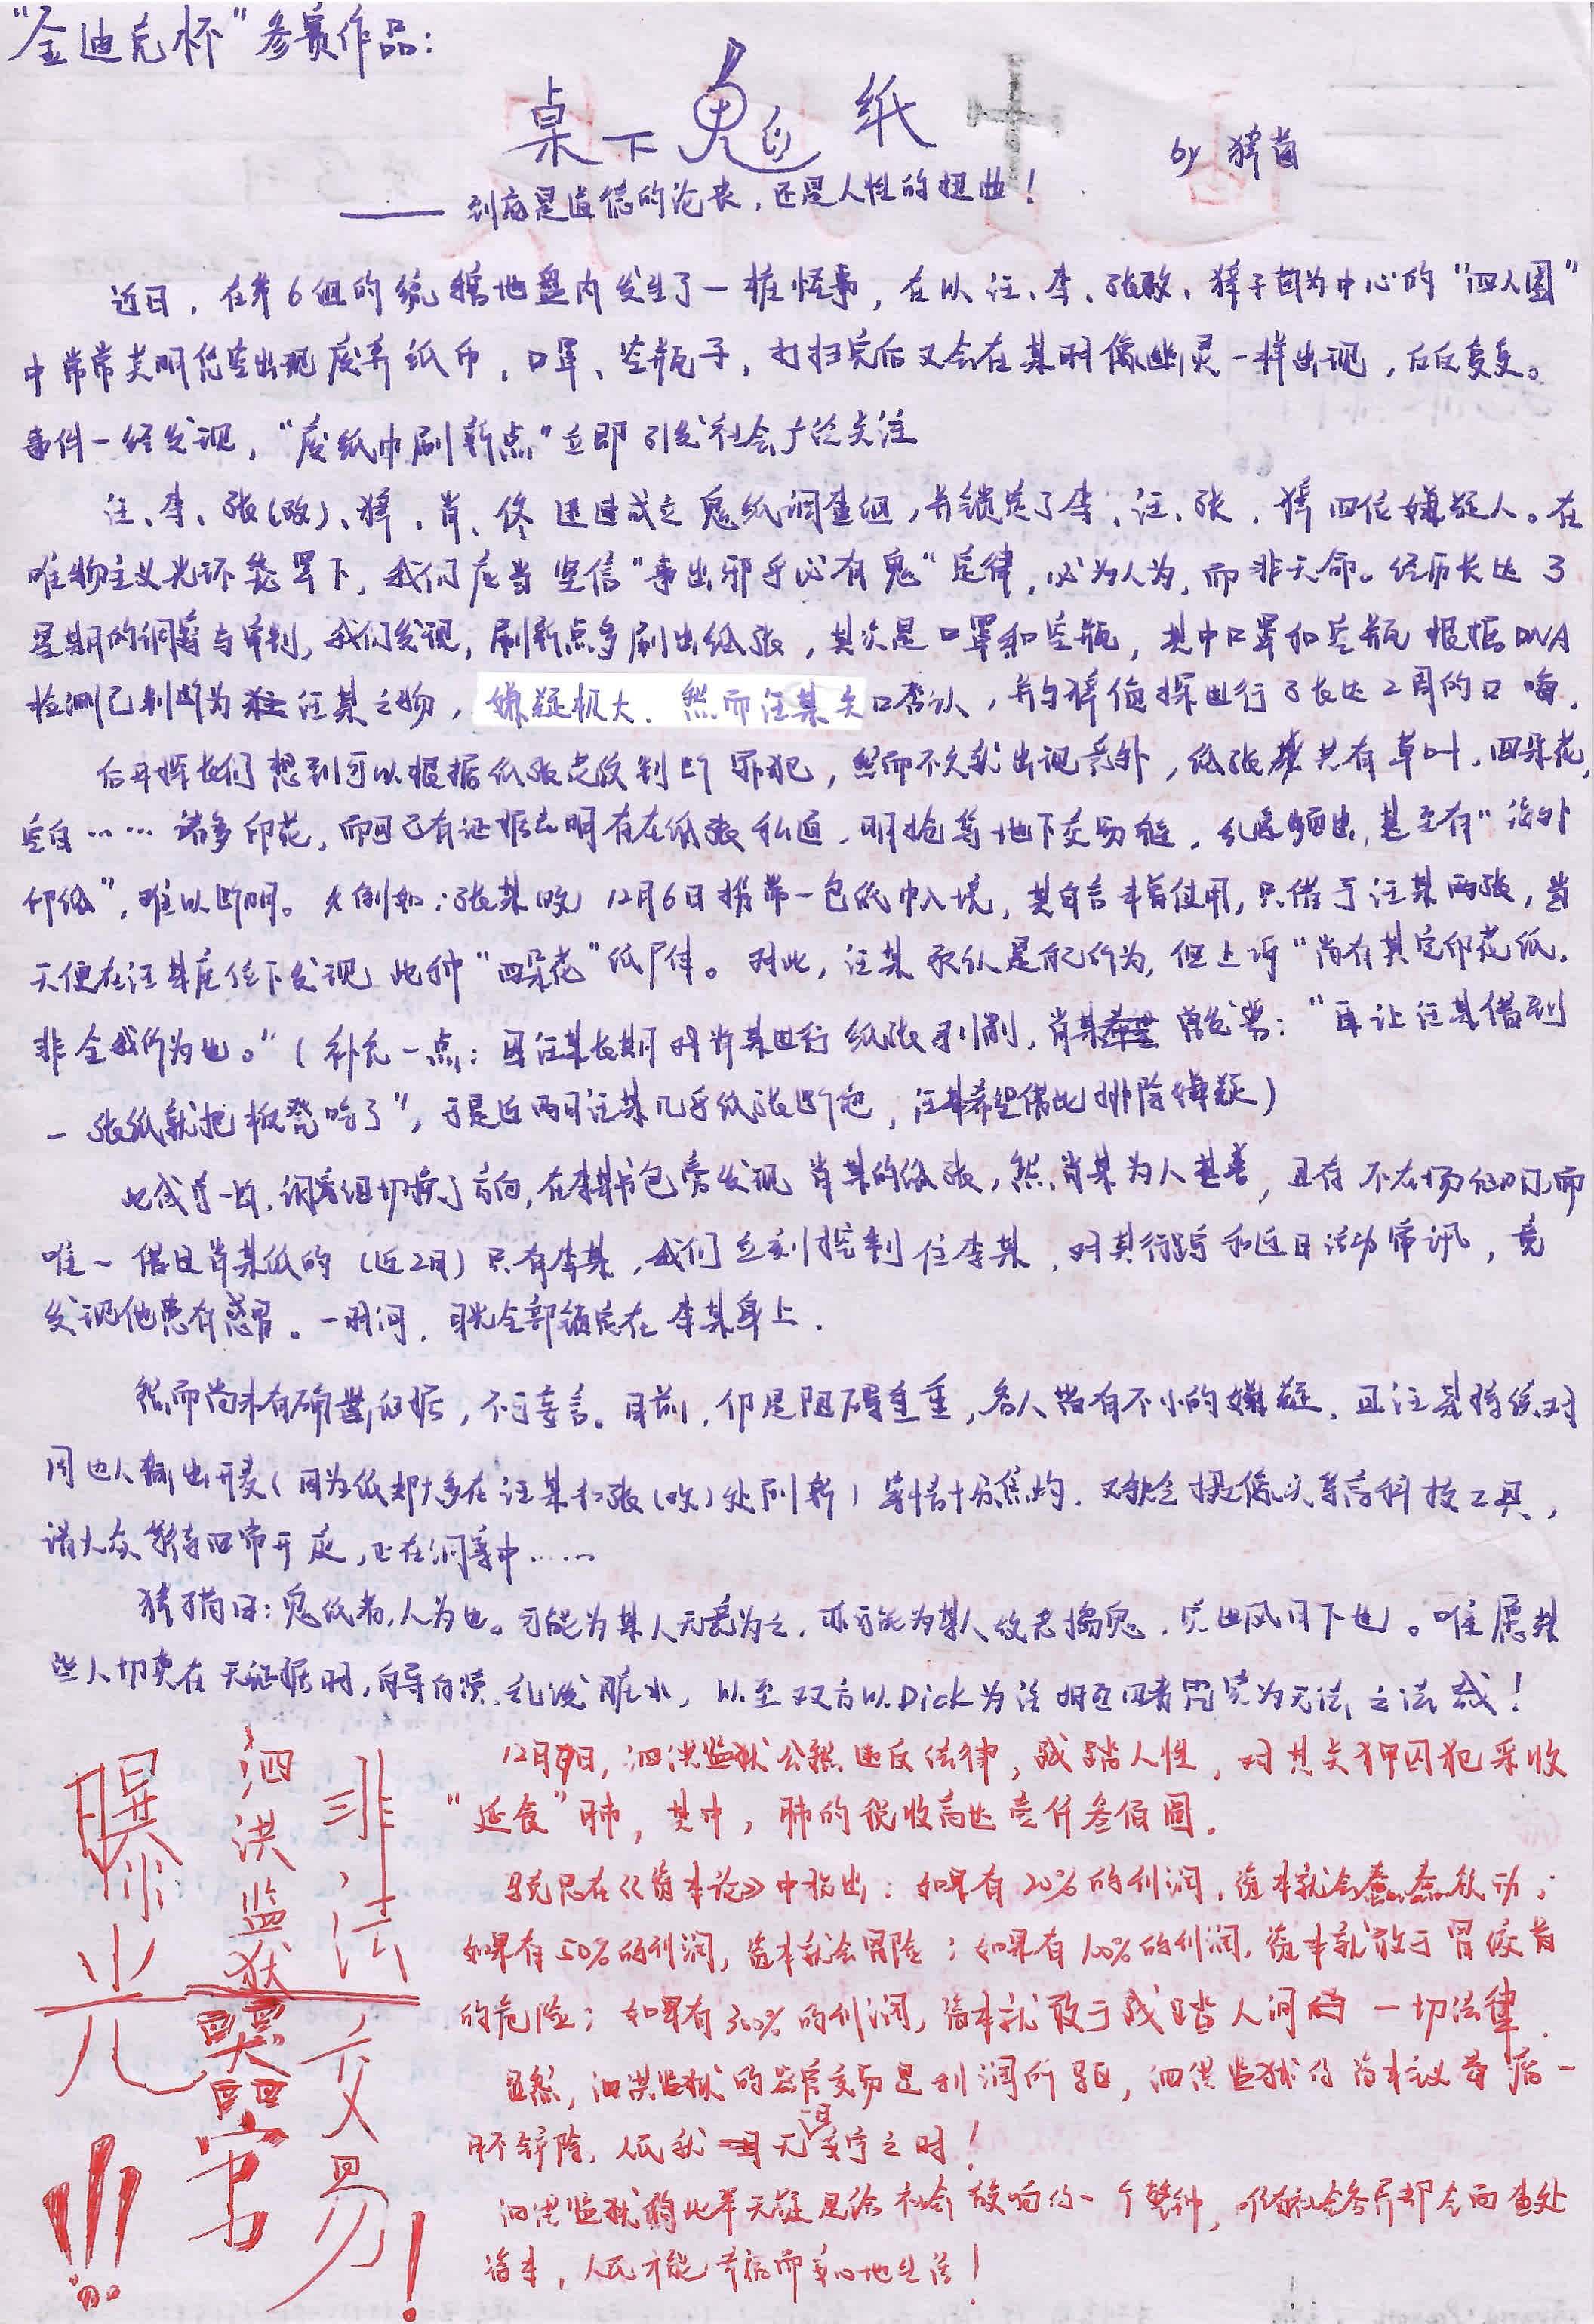 “金迪克杯”参赛作品：
桌下鬼纸
by 猹茵
—— 到底是道德的沦丧，还是人性的扭曲！
近日，在第6组的统辖地盘内发生了一桩怪事，在以汪、李、张政、猹子茵为中心的“四人团”
中常常莫明凭空出现废弃纸巾、口罩、空瓶子，打扫完后又会在某时像幽灵一样出现，反反复复。
事件一经发现，“废纸巾刷新点”立即引发社会广泛关注
汪、李、张(政)、猹、肖、佟 迅速成立鬼纸调查组，并锁定了李、汪、张、猹四位嫌疑人。在
唯物主义光环笼罩下，我们应当坚信“事出邪乎必有鬼”定律，必为人为，而非天命。经历长达3
星期的调查与审判，我们发现，刷新点多刷出纸张，其次是口罩和空瓶，其中口罩和空瓶根据DNA
检测已判断为汪某之物，嫌疑极大。然而汪某矢口否认，并与猹侦探进行了长达2周的口嗨。
后于探长们想到可以根据纸张花纹判断罪犯，然而不久就出现意外，纸张共有草叶、四朵花、
空白……诸多印花，而且已有证据表明存在纸张私通、明抢等地下交易链，乱象频出，甚至有“海外
印纸”，难以断明。例如：张某(政)12月6日携带一包纸巾入境，其自言未曾使用，只借于汪某两张，当
天便在汪某座位下发现此种“四朵花”纸尸体。对此，汪某承认是所为，但上诉“尚有其它印花纸，
非全我所为也。”（补充一点：因汪某长期对肖某进行纸张剥削，肖某曾发誓：“再让汪某借到
一张纸就把板凳吃了”，于是近两日汪某几乎纸张断绝，汪某希望借此排除嫌疑）
调查组切换了方向，在李某书包旁发现肖某的纸张，然肖某为人甚善，且有不在场证明，而
唯一借过肖某纸的（近2日）只有李某，我们立刻控制住李某，对其行踪和近日活动审讯，竟
发现他患有感冒。一时间，目光全部锁定在李某身上。
然而尚未有确凿证据，不可妄言。目前，仍是阻碍重重，各人皆有不小的嫌疑，且汪某持续对
周边人输出开麦（因为纸都大多在汪某和张(政)处刷新）事情十分焦灼，又缺乏摄像头等高科技工具，
请大众等待四审开庭，正在调查中……
猹子茵曰：鬼纸者，人为也。可能为某人无意为之，亦可能为某人故意捣鬼，。唯愿某
些人切莫在无证据时，自导自演，乱泼脏水，以至双方以Dick为法！
曝光
泗洪监狱
非法交易！
12月9日，泗洪监狱公然违反法律，践踏人性，对其关押囚犯采收
“延食”肺，其中，肺的税收高达壹仟叁佰圆。
马克思在《资本论》中指出：如果有20%的利润，资本就会蠢蠢欲动；
如果有50%的利润，资本就会冒险；如果有100%的利润，资本就敢于冒绞首
的危险；如果有300%的利润，资本就敢于践踏人间一切法律。
显然，泗洪监狱的器官交易是利润所驱，泗洪监狱的资本主义毒瘤一
日不铲除，人民就无安宁之日！
泗洪监狱的此举无疑是给社会敲响的一个警钟，唯有社会各界都全面查处
资本，人民才能幸福而安心地生活！